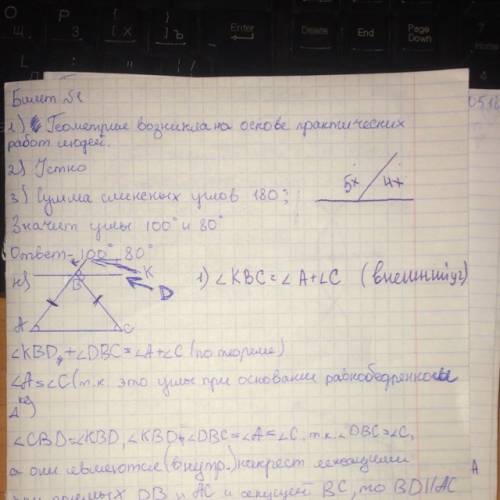 O Щ
P З
{ [ X
} ] Ъ
Enter
Delete
End
Page Down
Билет №1
1) Геометрия возникла на основе практических
работ людей.
2) Устно
3) Сумма смежных углов 180°;
5x 4x
Значит углы 100° и 80°
Ответ - 100°, 80°
4)
K
B
D
A
C
1) ∠KBC = ∠A+∠C (внешний уг)
∠KBD + ∠DBC = ∠A+∠C (по теореме)
∠A = ∠C (т.к. это углы при основании равнобедренного
Δ)
∠CBD = ∠KBD, ∠KBD, ∠DBC = ∠A = ∠C. т.к. ∠DBC = ∠C,
а они являются (внутр.) накрест лежащими
при прямых DB и AC и секущей BC, то BD || AC
A